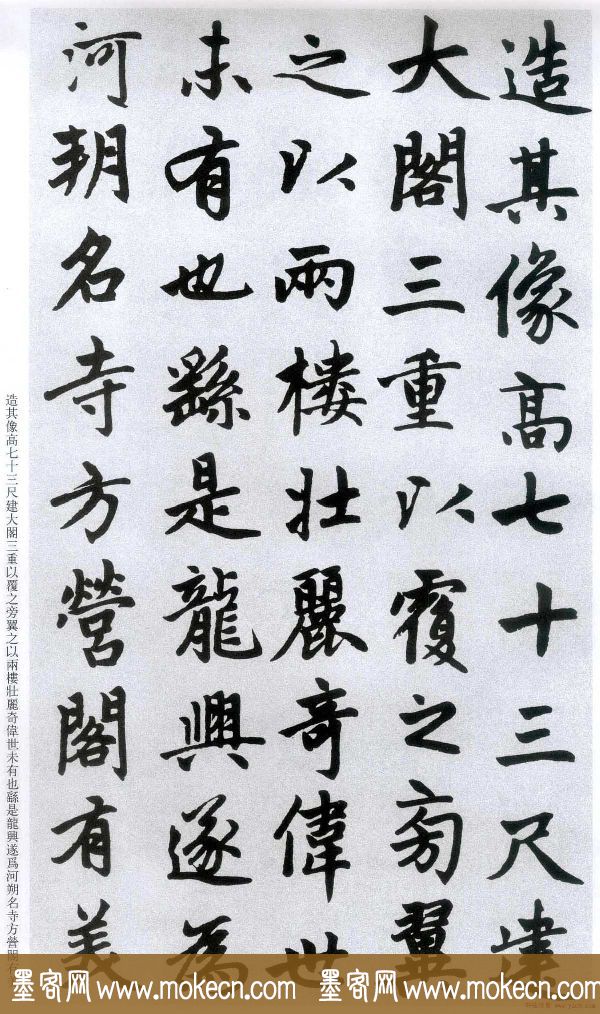 造其像高七十三尺建
大閣三重以覆之旁翼
之以兩樓壯麗奇偉世
未有也繇是龍興遂為
河朔名寺方營閣有美
造其像高七十三尺建大閣三重以覆之旁翼之以兩樓壯麗奇偉世未有也繇是龍興遂爲河朔名寺方營閣
墨客网 www.mokecn.com 墨客网 www.mokecn.com